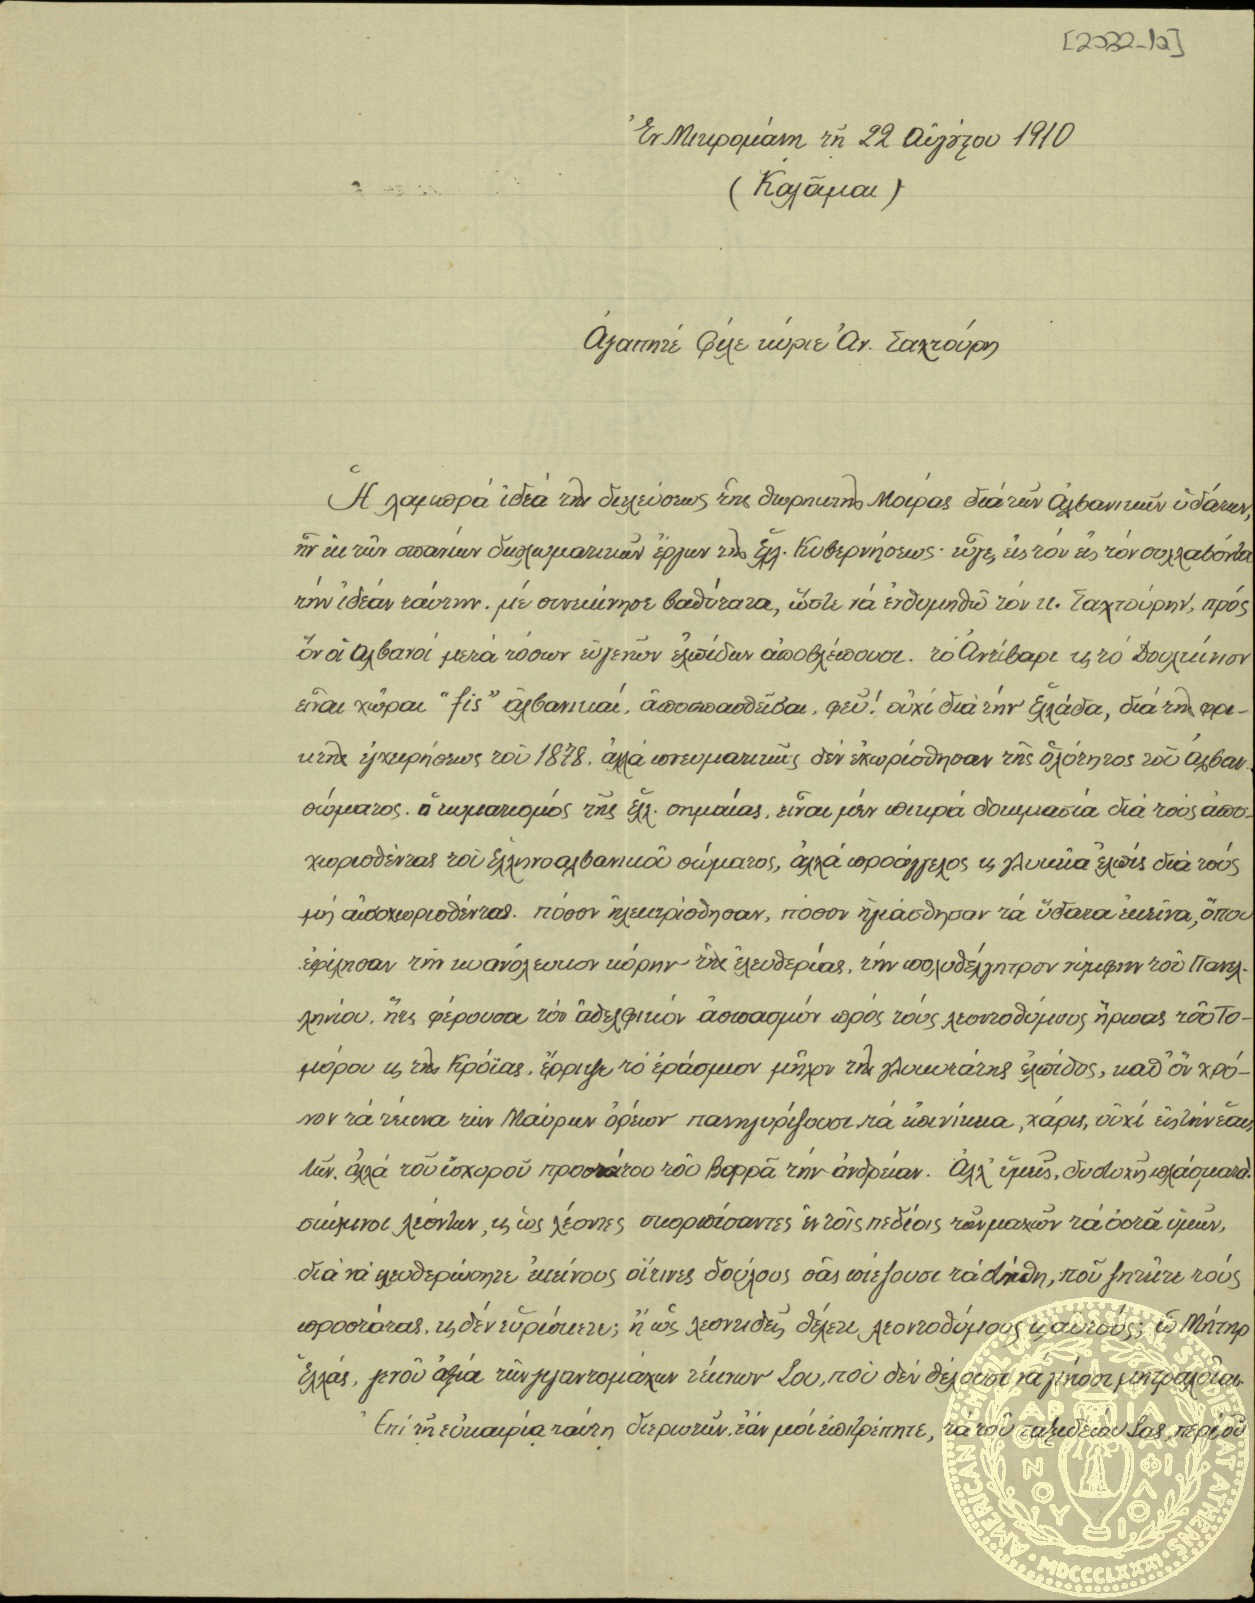 [2032-1a]
Ἐν Μικρομάνη τῇ 22 Αὐγούστου 1910
(Καλάμαι)
Ἀγαπητέ φίλε κύριε Ἀν. Σαχτούρη
Ἡ λαμπρά ἰδέα τῆς διελεύσεως τῆς θωρηκτῆς Μοίρας διά τῶν Ἀλβανικῶν ὑδάτων,
ἦν ἐκ τῶν σπανίων διπλωματικῶν ἔργων τῆς Ἑλλ. Κυβερνήσεως· εὖγε, εἰς τόν εἰς τόν συλλαβόντα
τήν ἰδέαν ταύτην. μέ συνεκίνησε βαθύτατα, ὥστε νά ἐνθυμηθῶ τόν κ. Σαχτούρην, πρός
ὅν οἱ Ἀλβανοί μετά τόσων εὐγενῶν ἐλπίδων ἀποβλέπουσι. τὸ Ἀντίβαρι κ τό Δουλκίνιον
εἶναι χῶραι "fis" ἀλβανικαί, ἀποσπασθεῖσαι, φεῦ! οὐχί διά τήν Ἑλλάδα, διά τῆς φρι-
κτῆς ἐγχειρήσεως τοῦ 1878, ἀλλά πνευματικῶς δέν ἐχωρίσθησαν τῆς ὁλότητος τοῦ Ἀλβαν.
σώματος. ὁ κυματισμός τῆς Ἑλλ. σημαίας, εἶναι μέν πικρά δοκιμασία διά τούς ἀπο-
χωρισθέντας τοῦ ἑλληνοαλβανικοῦ σώματος, ἀλλά προάγγελος κ γλυκεῖα ἐλπίς διά τούς
μή ἀποχωρισθέντας. πόσον ἠλεκτρίσθησαν, πόσον ἡγιάσθησαν τά ὕδατα ἐκεῖνα, ὅπου
ἐφίλησαν τήν κυανόλευκον κόρην τῆς ἐλευθερίας, τήν πολυθέλγητρον νύμφην τοῦ Πανελ-
ληνίου, ἥτις φέρουσα τόν ἀδελφικόν ἀσπασμόν πρός τούς λεοντοθύμους ἥρωας τοῦ Το-
μόρου κ τῆς Κροΐας, ἔρριψε τό ἐράσμιον μῆλον τῆς γλυκυτάτης ἐλπίδος, καθ' ὅν χρό-
νον τά τέκνα τῶν Μαύρων ὀρέων πανηγυρίζουσι τά ἐπινίκια, χάρις, οὐχί εἰς τήν ἑαυ
τῶν, ἀλλά τοῦ ἰσχυροῦ προστάτου τοῦ Βορρᾶ τήν ἀνδρείαν. Ἀλλ' ὑμεῖς, δυστυχῆ πλάσματα,
σκύμνοι λεόντων, κ ὡς λέοντες σκορπίσαντες ἐν τοῖς πεδίοις τῶν μαχῶν τά ὀστᾶ ὑμῶν,
διά νά ἐλευθερώσητε ἐκείνους οἵτινες δούλους σᾶς πιέζουσι τά στήθη, ποῦ ζητεῖτε τούς
προστάτας, κ δέν εὑρίσκετε; ἤ ὡς λεοντιδεῖς θέλετε λεοντοθύμους κ αὐτούς; ὦ Μήτηρ
Ἑλλάς, γενοῦ ἀξία τῶν γιγαντομάχων τέκνων Σου, πού δέν θέλουσι νά γίνωσι μητραλοῖαι.
Ἐπί τῇ εὐκαιρίᾳ ταύτῃ διερωτῶ, ἐάν μοί ἐπιτρέπητε, τά τοῦ ταξιδείου Σας, περί οὗ
AMERICAN SCHOOL OF CLASSICAL STUDIES AT ATHENS
MDCCCLXXXI
ΠΑΡΘΕΝΟΥ ΦΙΛΟΙ